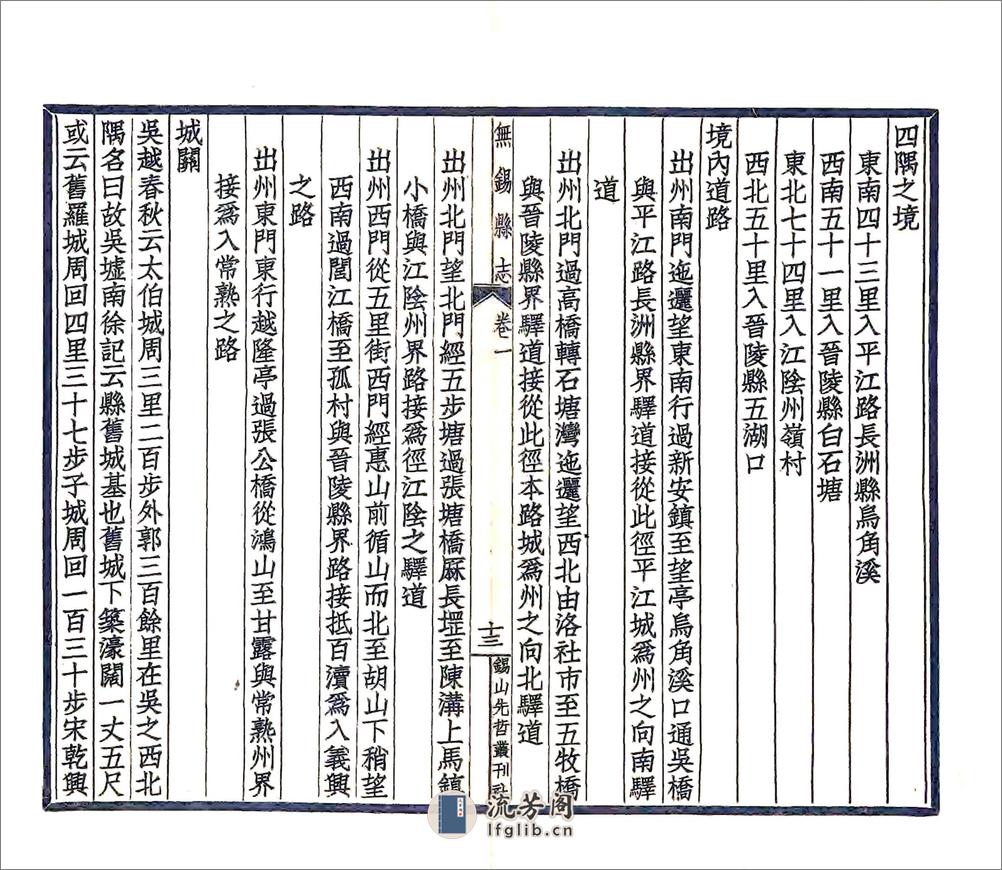 四隅之境
東南四十三里入平江路長洲縣烏角溪
西南五十一里入晉陵縣白石塘
東北七十四里入江陰州嶺村
西北五十里入晉陵縣五湖口
境內道路
出州南門迤邐望東南行過新安鎮至望亭烏角溪口通吳橋
與平江路長洲縣界驛道接從此徑平江城爲州之向南驛
道
出州北門過高橋轉石塘灣迤邐望西北由洛社市至五牧橋
與晉陵縣界驛道接從此徑本路城爲州之向北驛道
無錫縣志 卷一 十三 錫山先哲叢刊
出州北門望北門經五步塘過張塘橋厤長堽至陳溝上馬鎮
小橋與江陰州界路接爲徑江陰之驛道
出州西門從五里街西門經惠山前循山而北至胡山下稍望
西南過閭江橋至孤村與晉陵縣界路接抵百瀆爲入義興
之路
出州東門東行越隆亭過張公橋從鴻山至甘露與常熟州界
接爲入常熟之路
城關
吳越春秋云太伯城周三里二百步外郭三百餘里在吳之西北
隅名曰故吳墟南徐記云縣舊城基也舊城下築濠闊一丈五尺
或云舊羅城周回四里三十七步子城周回一百三十步宋乾興
流芳阁
lfglib.cn